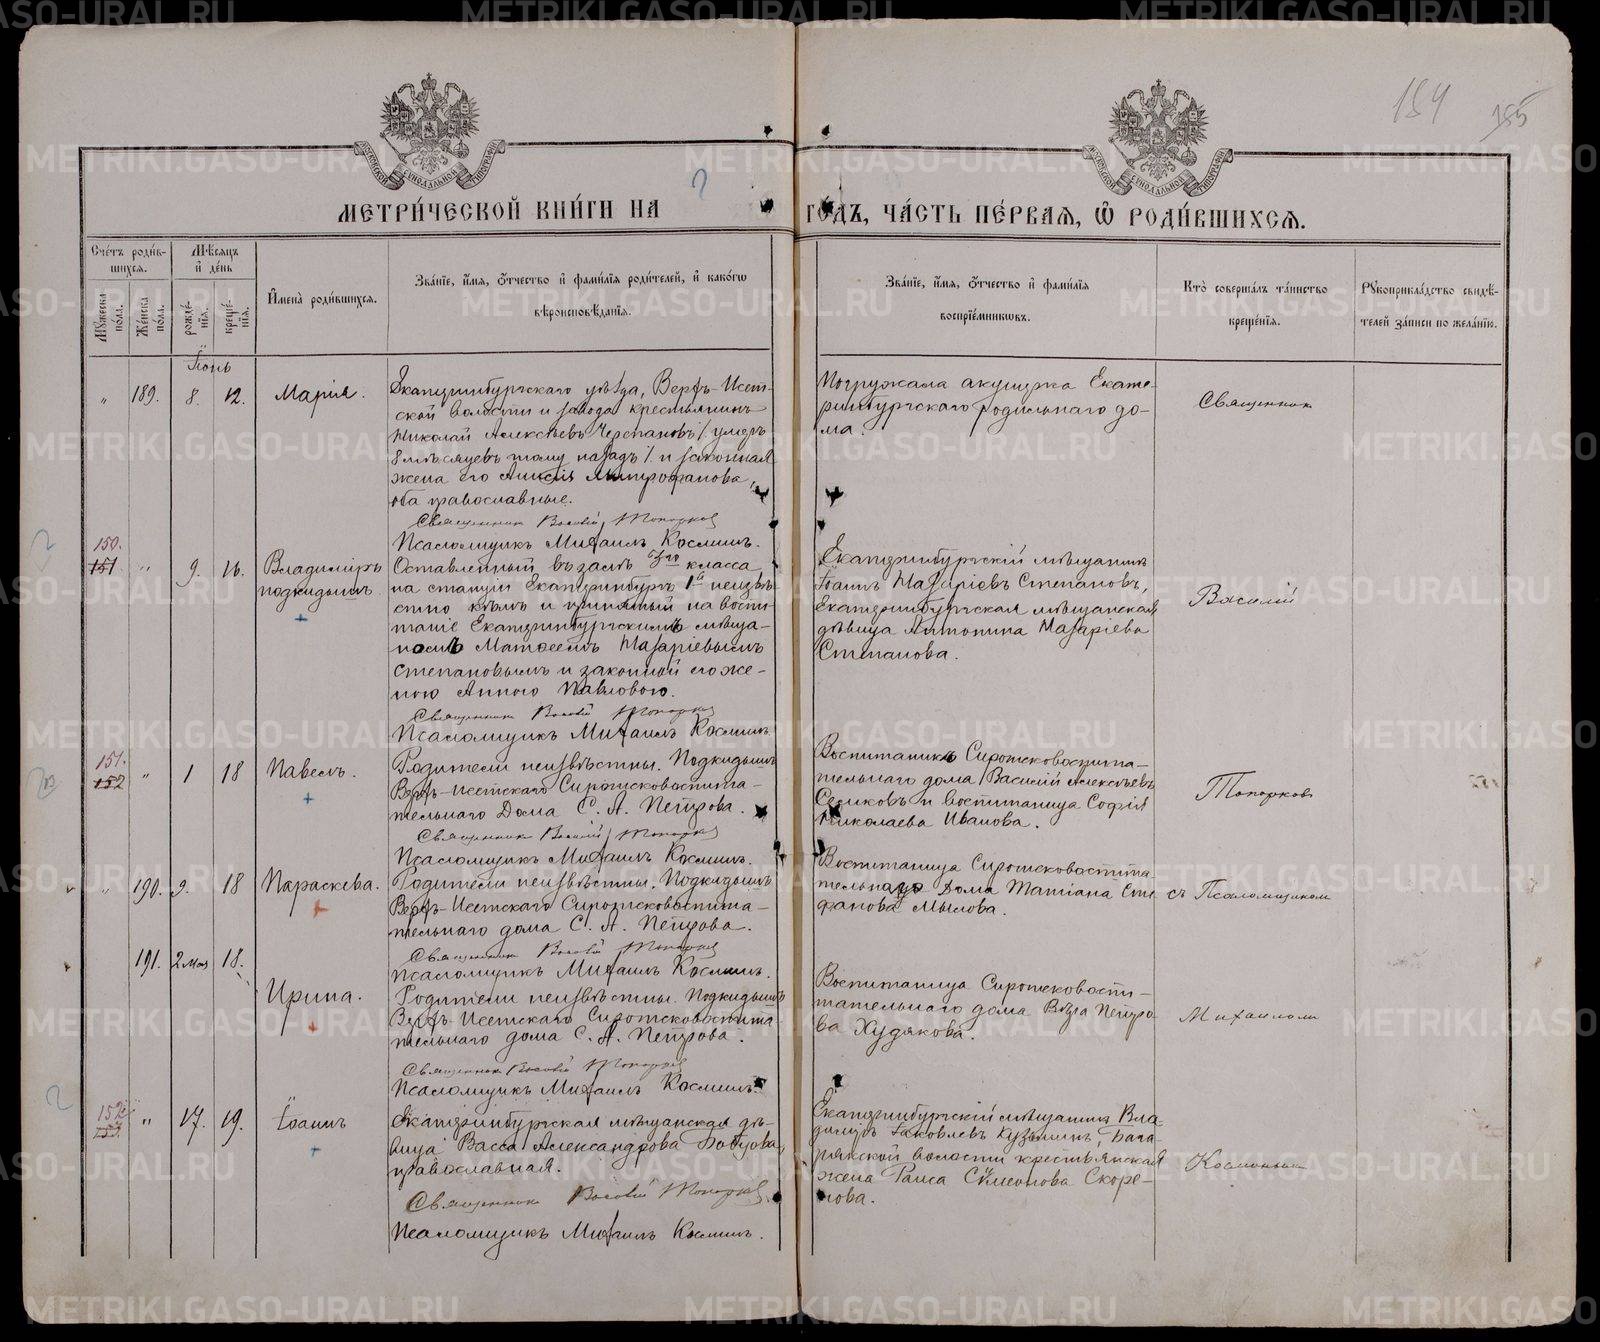 154
155
МЕТРИ́ЧЕСКОЙ КНИ́ГИ НА ГО́ДЪ, ЧА́СТЬ ПЕ́РВАЯ, Ѡ РОДИ́ВШИХСЯ.
Сче́тъ роди́вшихся.
Му́жеска по́ла.
Же́нска по́ла.
Мѣ́сяцъ и де́нь
рожде́нїя.
креще́нїя.
Имена̀ роди́вшихся.
Зва́нїе, и́мя, о́тчество и фами́лїя роди́телей, и како́гѡ
вѣроисповѣ́данїя.
Зва́нїе, и́мя, о́тчество и фами́лїя
воспрїе́мникѡвъ.
Кто̀ соверша́лъ та́инство
креще́нїя.
Рукоприкла́дство свидѣ́-
телей за́писи по жела́нїю.
Іюнь
„ 189. 8. 12. Марія.
Екатеринбургскаго уѣзда, Верхъ-Исет-
ской волости и завода крестьянинъ
Николай Алексѣевъ Черепановъ /: умеръ
8 мѣсяцевъ тому назадъ /: и законная
жена его Анисія Митрофанова,
оба православные.
Священник Василій Топорков
Псаломщикъ Михаилъ Космин.
Погружала акушерка Екате-
ринбургскаго родильнаго до-
ма.
Священник
150.
151 „ 9. 16. Владиміръ
подкидышъ
Оставленный въ залѣ 3го класса
на станціи Екатеринбургъ 1й неизвѣ-
стно кѣмъ и принятый на воспи-
таніе Екатеринбургскимъ мѣща-
номъ Матвеемъ Назаріевымъ
Степановымъ и законной его же-
ною Анною Павловою.
Священник Василій Топорков
Псаломщикъ Михаилъ Космин.
Екатеринбургскій мѣщанинъ
Іоаннъ Назаріевъ Степановъ,
Екатеринбургская мѣщанская
дѣвица Антонина Назаріева
Степанова.
Василій
151.
152 „ 1 18 Павелъ.
Родители неизвѣстны. Подкидышъ
Верхъ-Исетскаго Сиротсковоспита-
тельнаго Дома С. А. Петрова.
Священник Василій Топорков
Псаломщикъ Михаилъ Космин.
Воспитаникъ Сиротсковоспита-
тельнаго дома Василій Алексѣевъ
и воспитаница Софія
Николаева Иванова.
Топорков
„ 190. 9. 18 Параскева.
Родители неизвѣстны. Подкидышъ
Верхъ-Исетскаго Сиротсковоспита-
тельнаго дома С. А. Петрова.
Священник Василій Топорков
Псаломщикъ Михаилъ Космин.
Воспитаница Сиротсковоспита
тельнаго Дома Татіана Сте
фанова Мылова.
съ Псаломщиком
191. 2 мая 18. Ирина.
Родители неизвѣстны. Подкидышъ
Верхъ-Исетскаго Сиротсковоспита-
тельнаго дома С. А. Петрова.
Священник Василій Топорков
Псаломщикъ Михаилъ Космин.
Воспитаница Сиротсковоспи-
тательнаго дома Вѣра Петро-
ва Худякова.
Михаилом
152
153. „ 17. 19. Іоаннъ
Екатеринбургская мѣщанская дѣ-
вица Васса Александрова Боброва,
православная.
Священник Василій Топорков
Псаломщикъ Михаилъ Космин.
Екатеринбургскій мѣщанинъ Вла-
димиръ Іаковлевъ Кузьминъ, Бага-
рякской волости крестьянская
жена Раиса Сѵмеонова Скоры-
нова.
Косминым